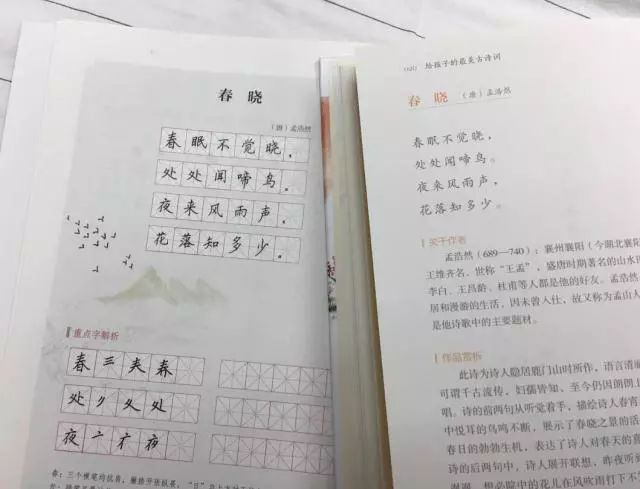 春 晓
（唐）孟浩然
春眠不觉晓，
处处闻啼鸟。
夜来风雨声，
花落知多少。
重点字解析
春 三 夫 春
处 夕 处
夜 亠 夜
春：三个横笔均抗肩，撇捺开张纵长，“日”
给孩子的最美古诗词
春 晓 （唐）孟浩然
春眠不觉晓，
处处闻啼鸟。
夜来风雨声，
花落知多少。
关于作者
孟浩然（689—740）：襄州襄阳（今湖北襄阳
王维齐名，世称“王孟”，盛唐时期著名的山水田
李白、王昌龄、杜甫等人都是他的好友。孟浩然
居和漫游的生活，因未曾入仕，故又称为孟山人
是他诗歌中的主要题材。
作品赏析
此诗为诗人隐居鹿门山时所作，语言清
可谓千古流传，妇孺皆知，至今仍因朗朗上
唱。诗的前两句从听觉着手，描绘诗人春宵
中悦耳的鸟鸣不断，展示了春晓之景的活
春日的勃勃生机，表达了诗人对春天的喜
诗的后两句中，诗人展开联想，昨夜听到
想必院中的花儿在风吹雨打下不